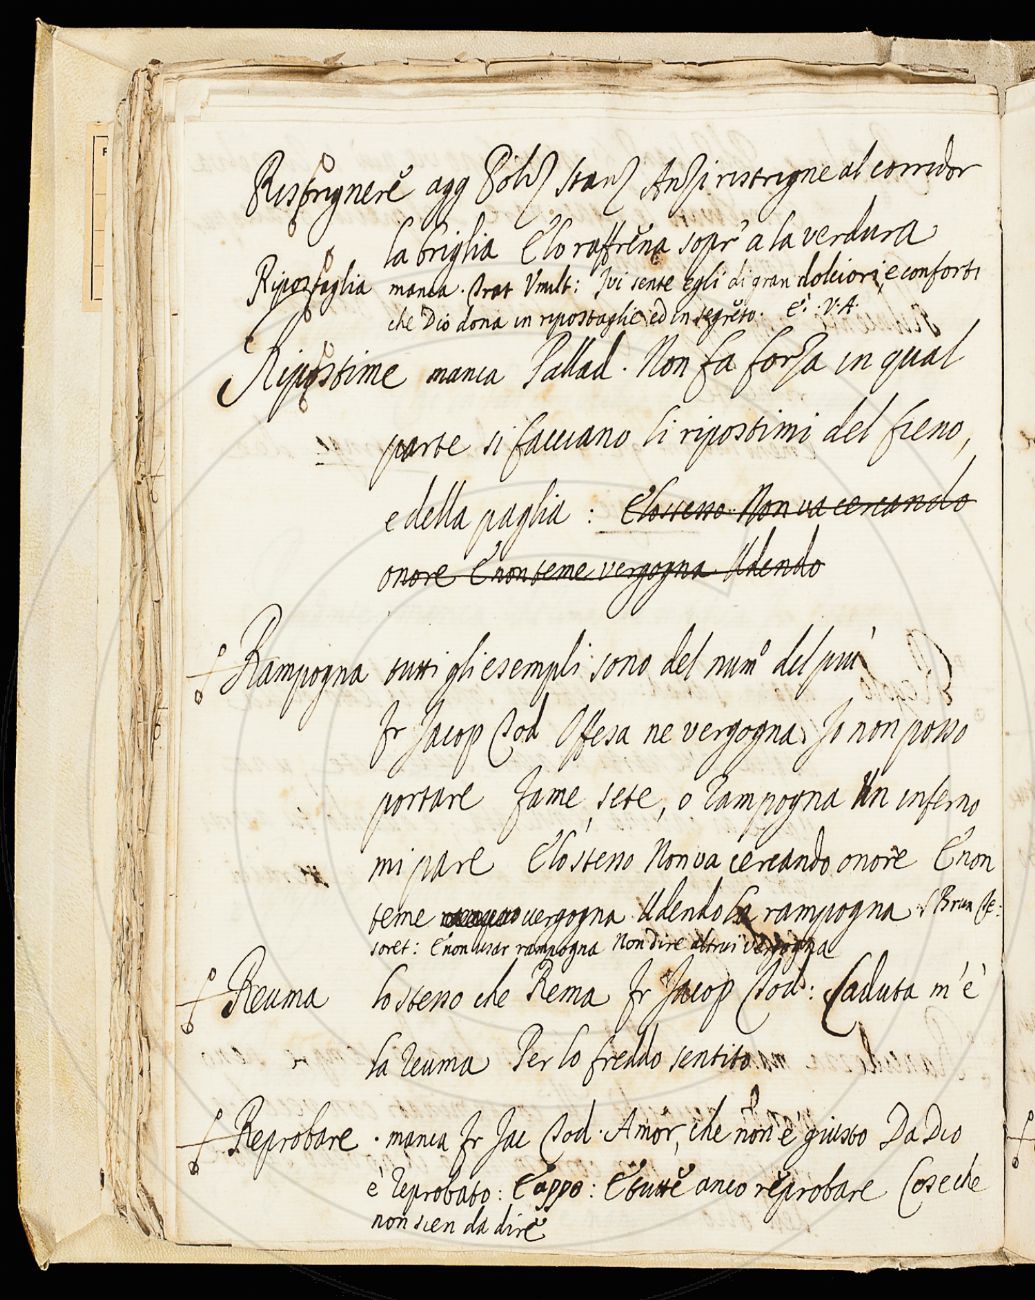 Ristrignere agg Poliz Stanz Anzi ristrigne al corridor
la briglia E lo raffrena sopr' a la verdura
Ripostaglia manca . Trat Umilt: Ivi sente egli di gran dolciori, e conforti
che Dio dona in ripostaglie, ed in segreto. E. V. A
Ripostime manca Pallad . Non fa forza in qual
parte si facciano li ripostimi del fieno,
e della paglia : E lo stesso Non va cercando
onore E non teme vergogna Udendo
Rampogna tutti gli esempli sono del num° del più
Fr Jacop Tod Offesa ne vergogna Io non posso
portare Fame, sete, o rampogna Un inferno
mi pare E lo stesso Non va cercando onore E non
teme vergogna Udendo la rampogna S Brun Te-
soret: E non usar rampogna Non dire altrui vergogna
Reuma lo stesso che Rema Fr Jacop Tod: Caduta m'è
la reuma Per lo freddo sentito
Reprobare . manca Fr Jac Tod . Amor, che non è giusto Da Dio
è reprobato : E appo : E tutte anco reprobare Cose che
non sien da dire